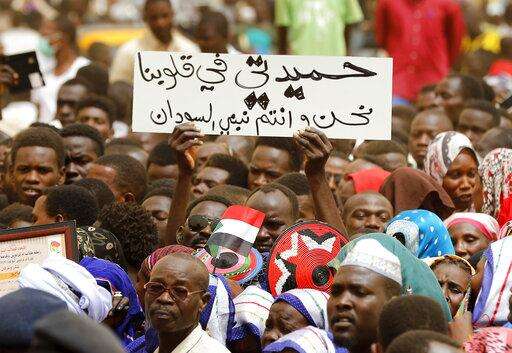 حميدتي في قلوبنا
نحن و انتم نبني لسودان